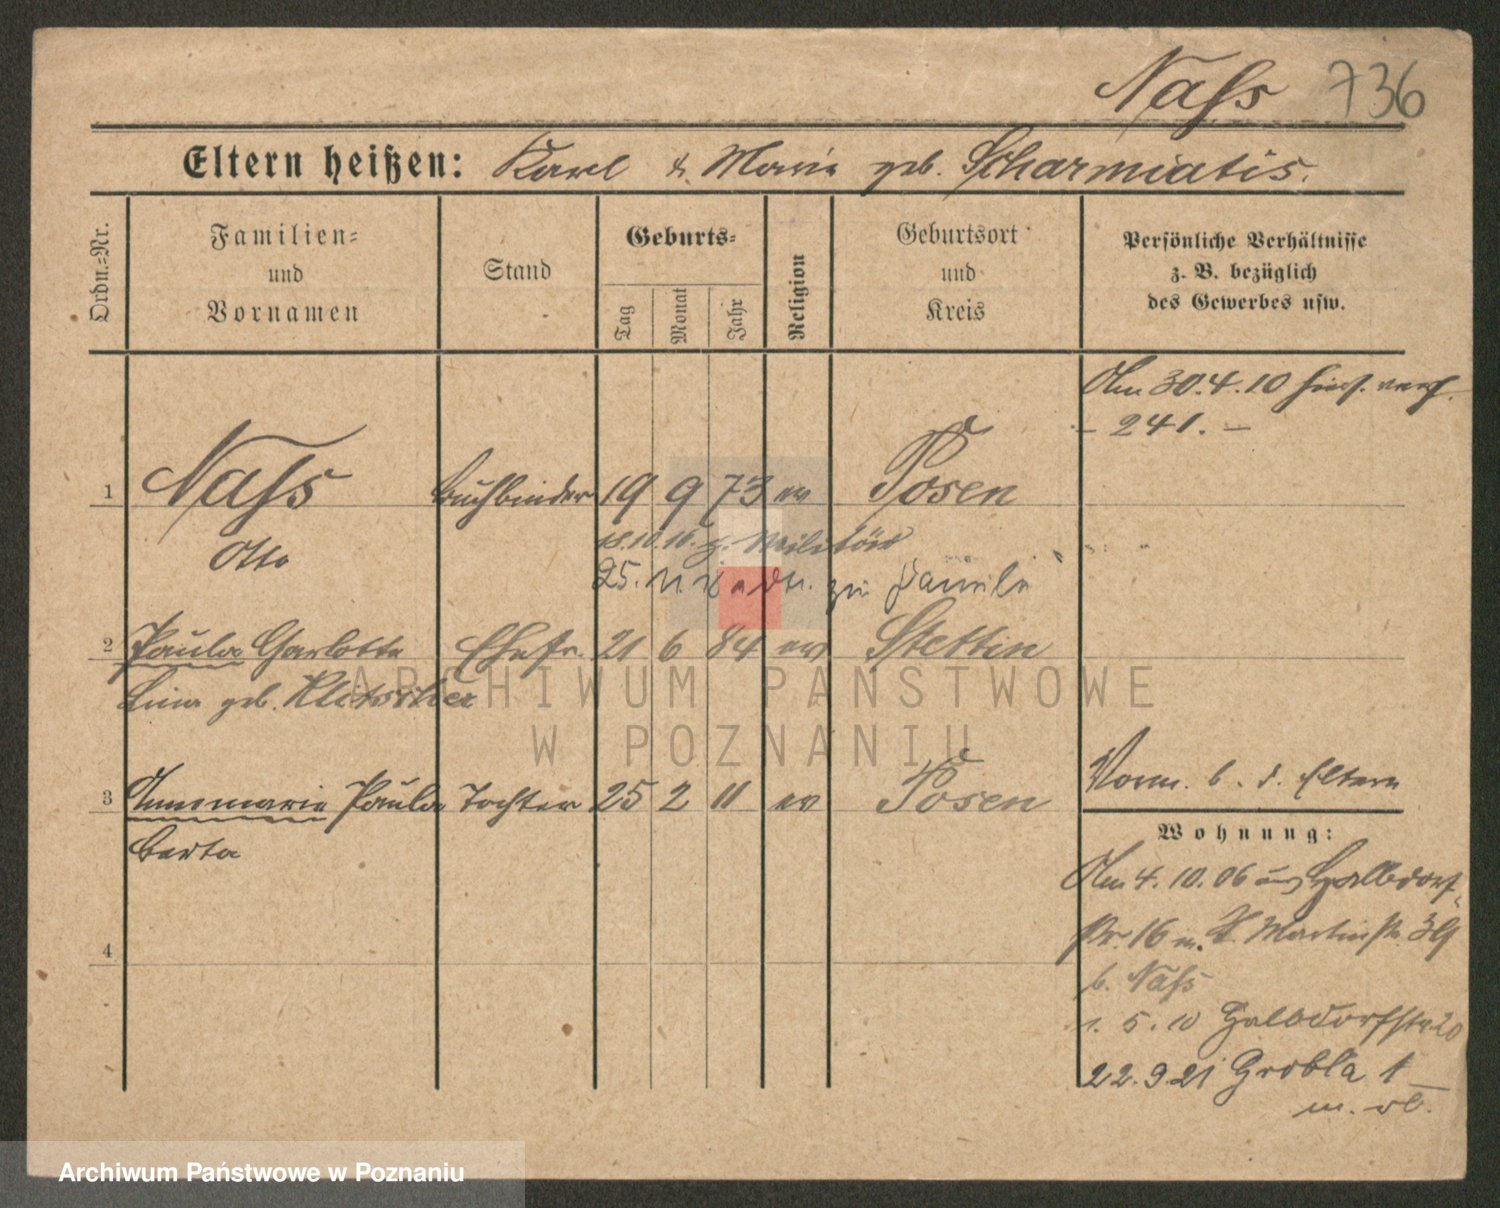 Naß 736
Eltern heißen: Karl & Marie geb. Scharmiatis.
Ordn.-Nr.
Familien-
und
Vornamen
Stand
Geburts-
Tag
Monat
Jahr
Religion
Geburtsort
und
Kreis
Persönliche Verhältnisse
z. B. bezüglich
des Gewerbes usw.
Am 30.4.10
- 241. -
1 Naß Buchbinder 19 9 73 ev Posen
Otto
18.10.16 z. Militär
25. zu Familie
2 Paula Charlotte Ehefr. 21 6 84 ev Stettin
geb. Klitscher
3 Annemarie Paula Tochter 25 2 11 ev Posen
Berta
Vorm. b. d. Eltern
Wohnung:
Am 4.10.06 Halbdorf-
str. 16 n. St. Martinstr. 39
b. Naß
1.5.10 Halbdorfstr 20
22.9.21 Grobla 1
4
ARCHIWUM PAŃSTWOWE
W POZNANIU
Archiwum Państwowe w Poznaniu